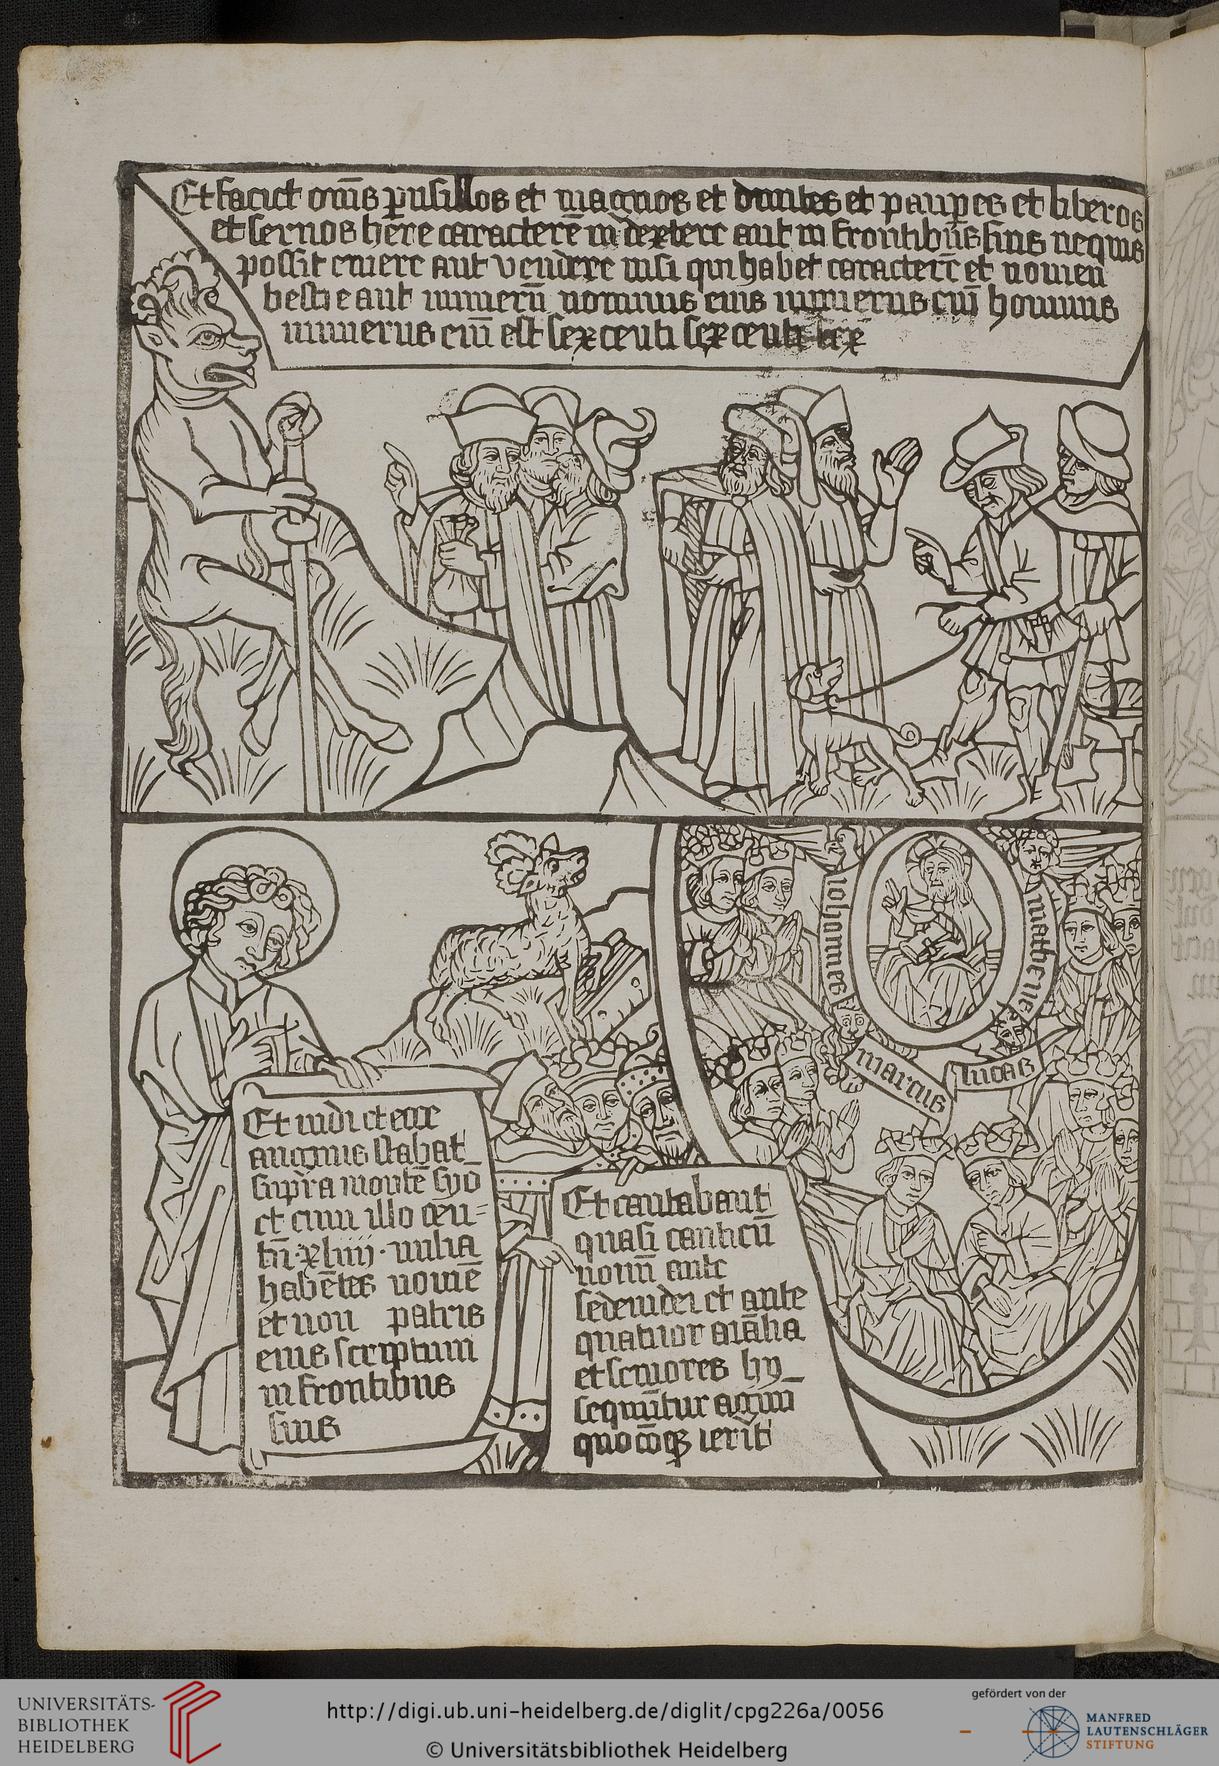 Et faciet om̄s pusillos et magnos et diuites et pauꝑes et liberos
et seruos hēre caracterē in dextere aut in frontibus suis nequis
possit emere aut vendere nisi qui habet caracterē et nomen
bestie aut numerū nominis eius numerus eni hominis
numerus eni est sexcenti sexcenti sex
Johannes
matheus
marcus
lucas
Et uidi et ecce
angnus stabat
supra montē syo
et cum illo cen=
tū·xliiij·milia
habētes nomē
et non patris
eius scriptum
in frontibus
suis
Et cantabant
quasi canticū
nouū ante
sedem dei et ante
quatuor aīalia
et seniores hy
sequūtur agnū
quocōqꝫ ierit
UNIVERSITÄTS-
BIBLIOTHEK
HEIDELBERG
http://digi.ub.uni-heidelberg.de/diglit/cpg226a/0056
© Universitätsbibliothek Heidelberg
gefördert von der
MANFRED
LAUTENSCHLÄGER
STIFTUNG